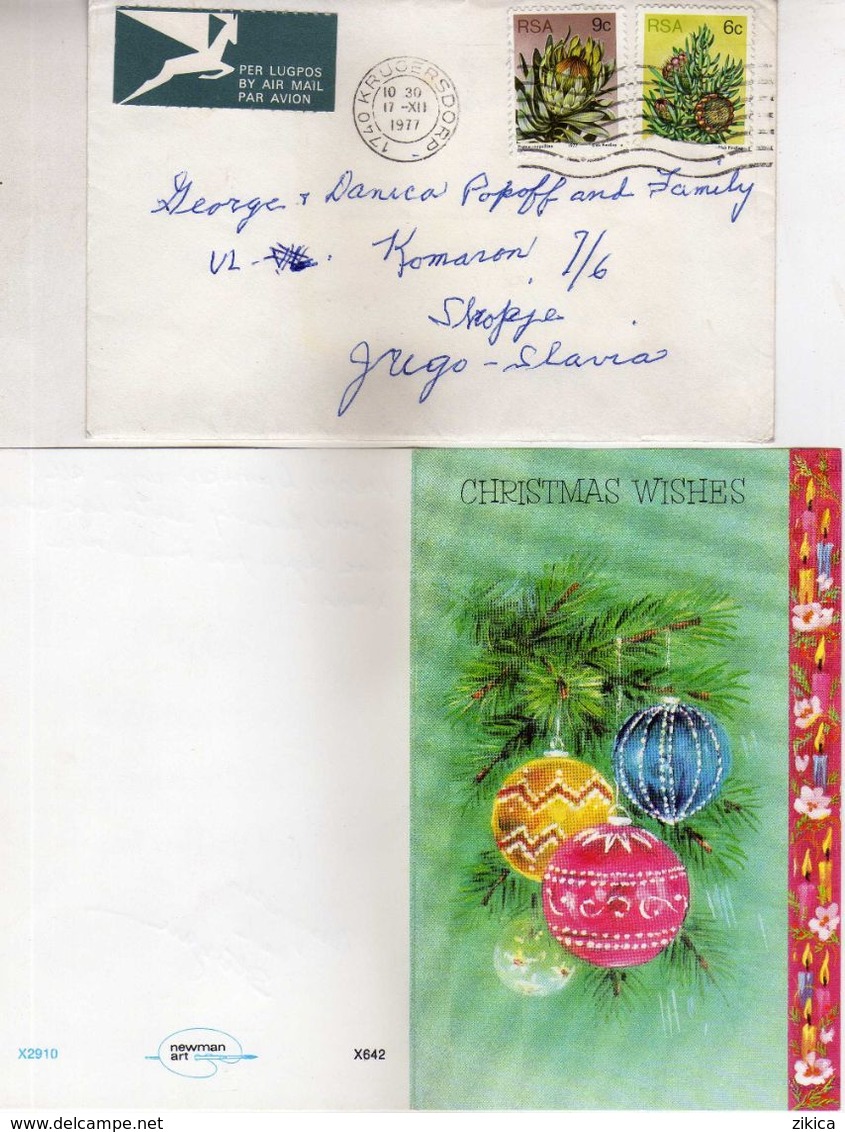 PER LUGPOS
BY AIR MAIL
PAR AVION
1740 KRUGERSDORP
10 30
17-XII
1977
RSA 9c
RSA 6c
George + Danica Popoff and Family
UL - Komaron 7/6
Skopje
Jugo-Slavia
CHRISTMAS WISHES
X2910
newman
art
X642
www.delcampe.net
zikica